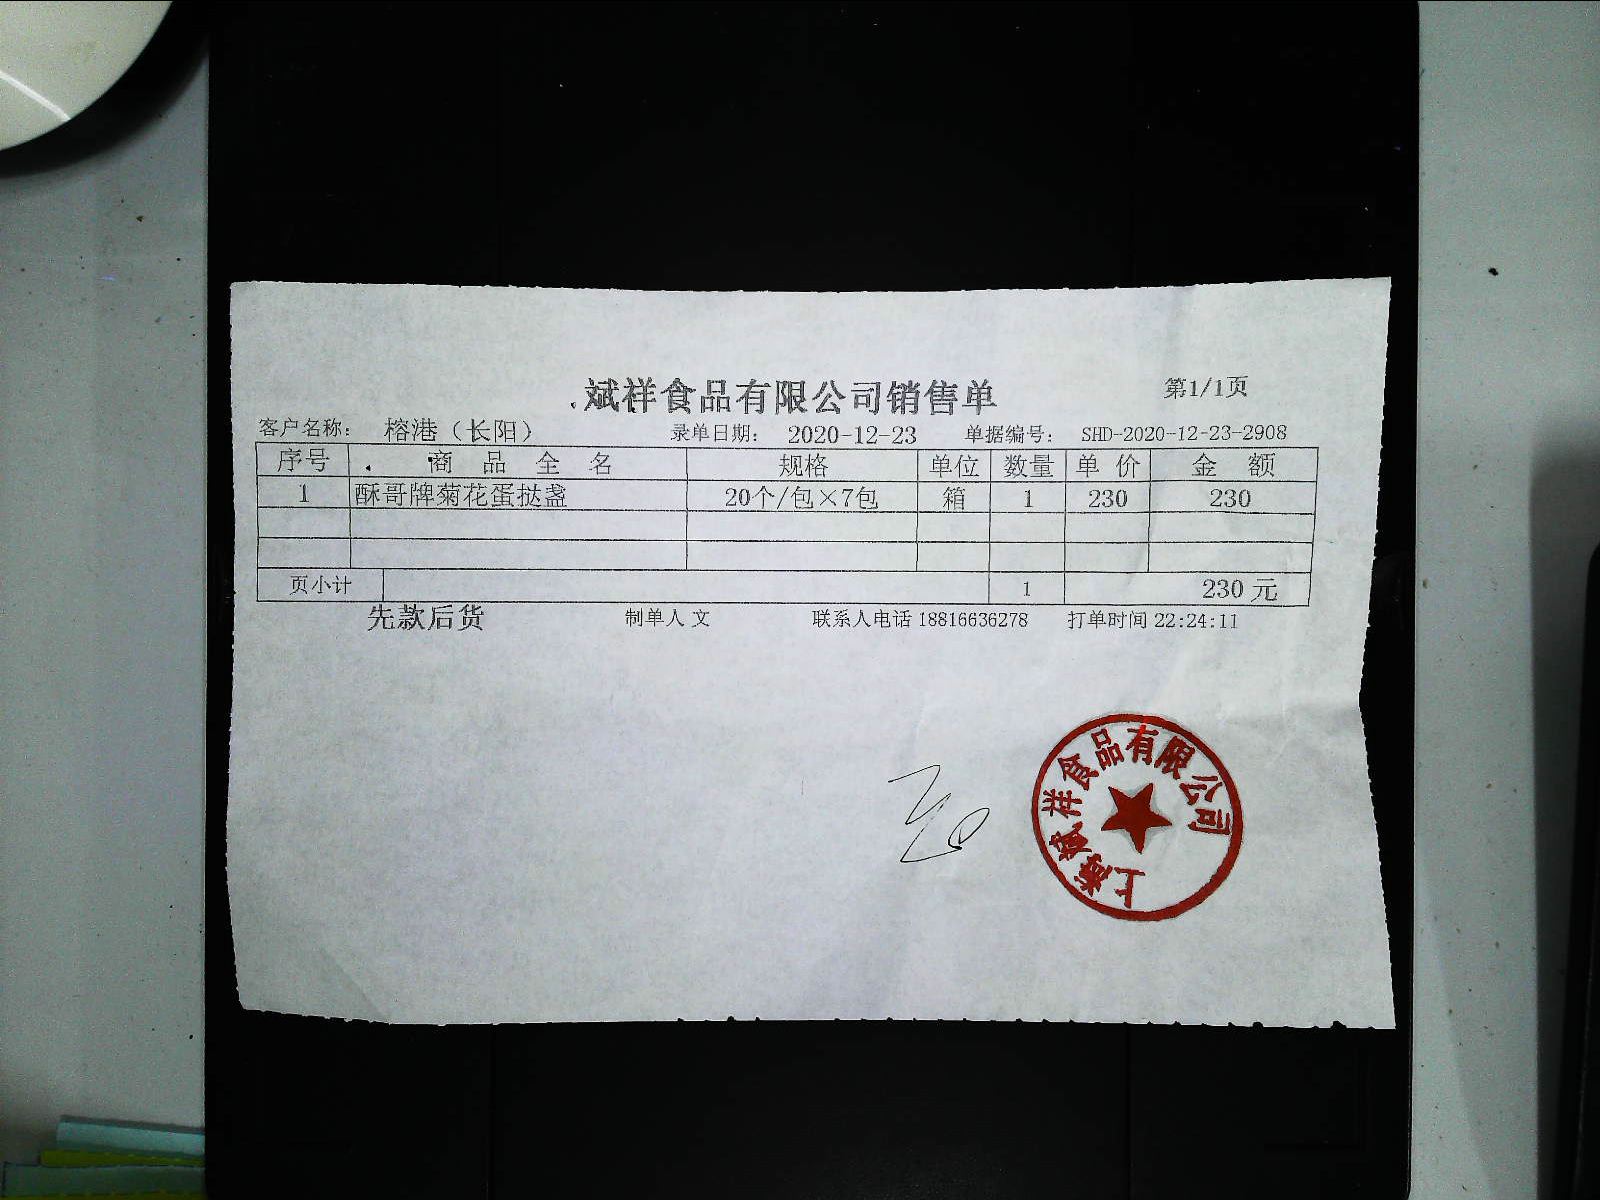 斌祥食品有限公司销售单 第1/1页
客户名称： 榕港（长阳） 录单日期： 2020-12-23 单据编号： SHD-2020-12-23-2908
序号 商品全名 规格 单位 数量 单价 金额
1 酥哥牌菊花蛋挞盏 20个/包×7包 箱 1 230 230
页小计 1 230 元
先款后货 制单人 文 联系人电话 18816636278 打单时间 22:24:11
上海斌祥食品有限公司